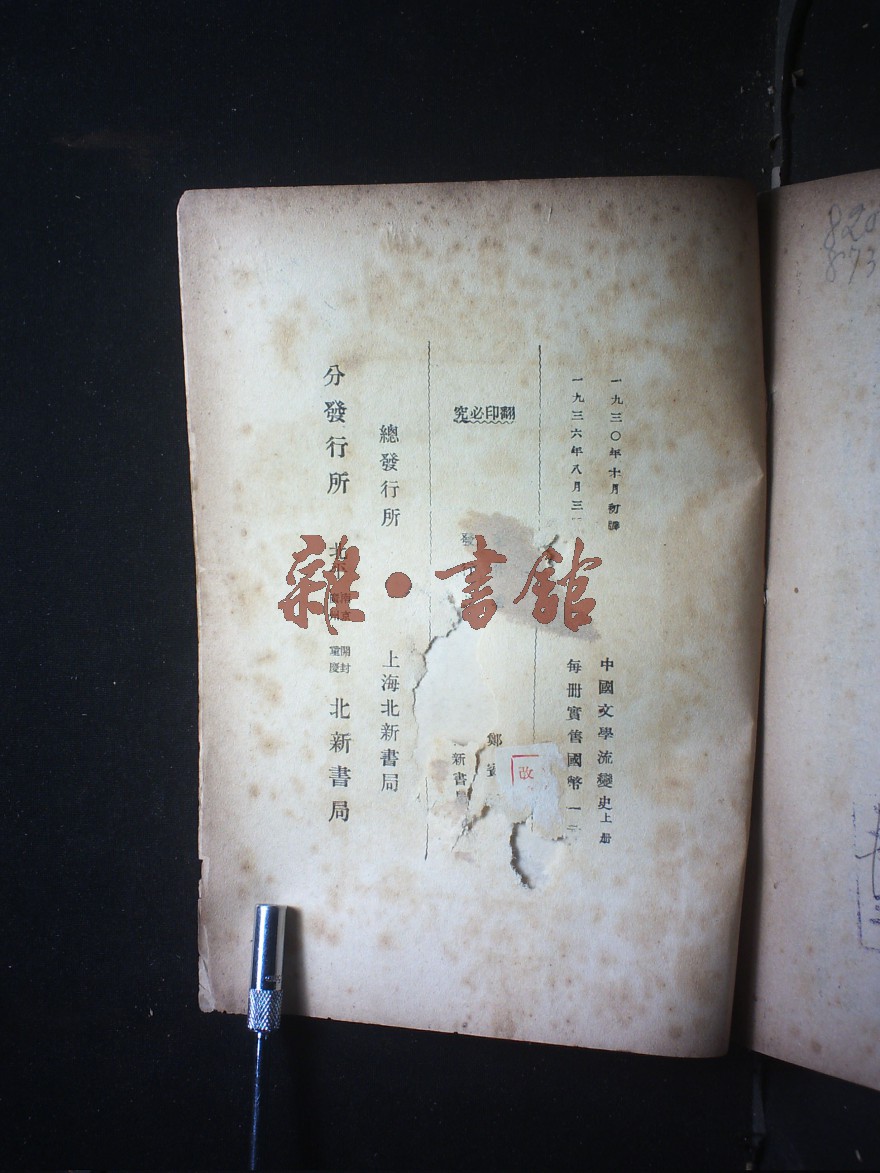 一九三〇年十月初版
一九三六年八月三
中國文學流變史上册
每册實售國幣一
翻印必究
發
鄭
新書
總發行所
上海北新書局
分發行所
北平
南京
開封
重慶
北新書局
雜·書館
改